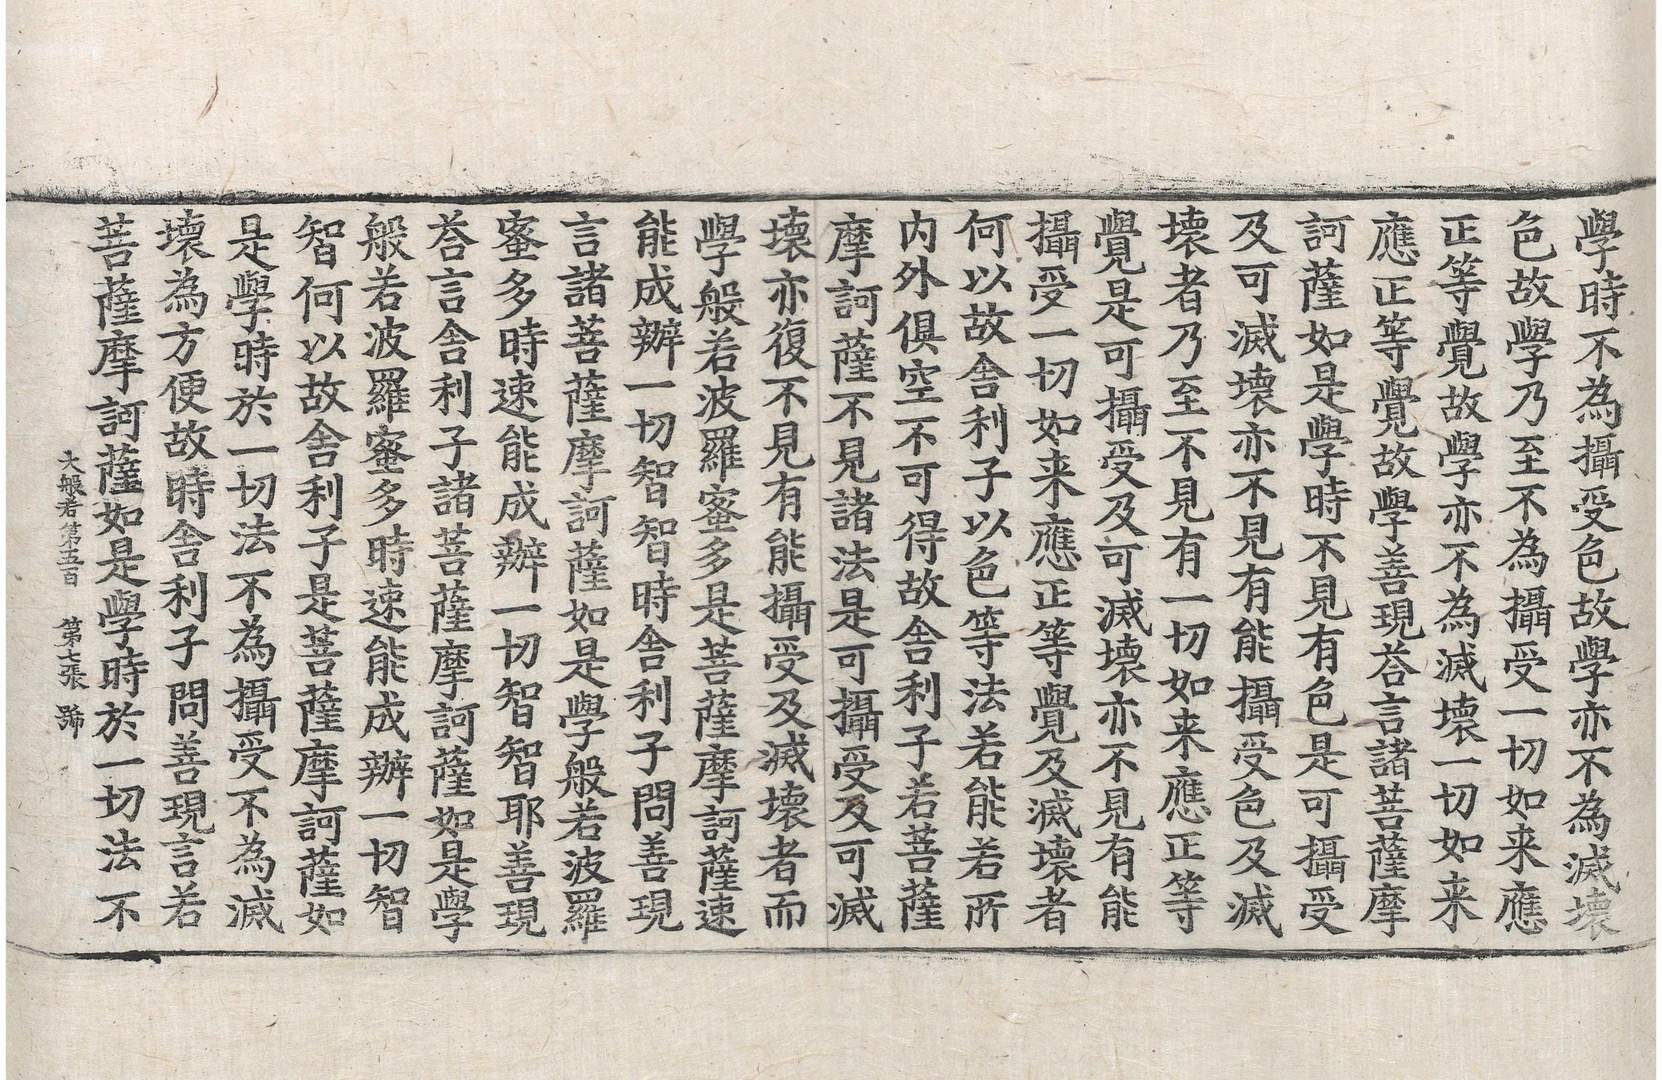 學時不為攝受色故學亦不為滅壞
色故學乃至不為攝受一切如来應
正等覺故學亦不為滅壞一切如来
應正等覺故學善現荅言諸菩薩摩
訶薩如是學時不見有色是可攝受
及可滅壞亦不見有能攝受色及滅
壞者乃至不見有一切如来應正等
覺是可攝受及可滅壞亦不見有能
攝受一切如来應正等覺及滅壞者
何以故舎利子以色等法若能若所
内外俱空不可得故舎利子若菩薩
摩訶薩不見諸法是可攝受及可滅
壞亦復不見有能攝受及滅壞者而
學般若波羅蜜多是菩薩摩訶薩速
能成辦一切智智時舎利子問善現
言諸菩薩摩訶薩如是學般若波羅
蜜多時速能成辦一切智智耶善現
荅言舎利子諸菩薩摩訶薩如是學
般若波羅蜜多時速能成辦一切智
智何以故舎利子是菩薩摩訶薩如
是學時於一切法不為攝受不為滅
壞為方便故時舎利子問善現言若
菩薩摩訶薩如是學時於一切法不
大般若第五百 第七張 㱔